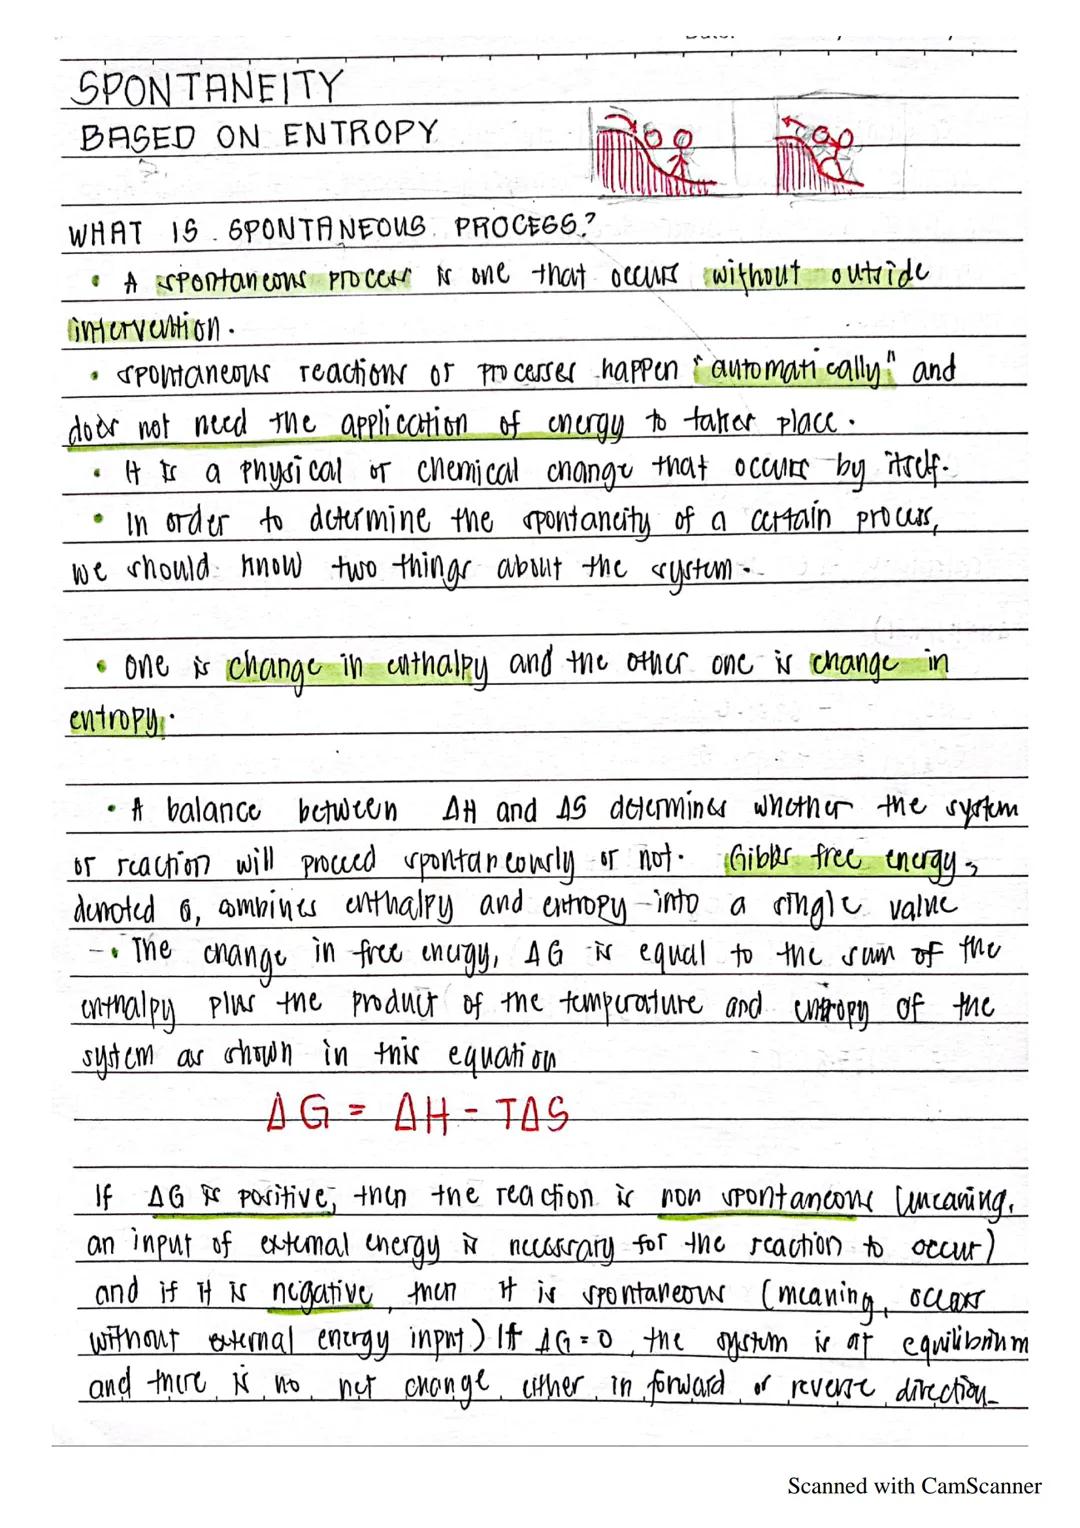 SPONTANEITY
BASED ON ENTROPY
WHAT IS SPONTANEOUS PROCESS?
• A spontaneous process is one that occurs without outside
intervention.
• spontaneous reactions or processes happen "automatically" and
does not need the application of energy to takes place.
• It is a physical or chemical change that occurs by itself.
• In order to determine the spontaneity of a certain process,
we should know two things about the system.
• One is change in enthalpy and the other one is change in
entropy.
• A balance between ΔH and ΔS determines whether the system
or reaction will proceed spontaneously or not. Gibbs free energy,
denoted G, combines enthalpy and entropy into a single value
• The change in free energy, ΔG is equal to the sum of the
enthalpy plus the product of the temperature and entropy of the
system as shown in this equation
ΔG = ΔH - TΔS
If ΔG is positive, then the reaction is non spontaneous (meaning,
an input of external energy is necessary for the reaction to occur)
and if it is negative, then it is spontaneous (meaning, occurs
without external energy input) If ΔG = 0, the system is at equilibrium
and there is no net change either in forward or reverse direction
Scanned with CamScanner